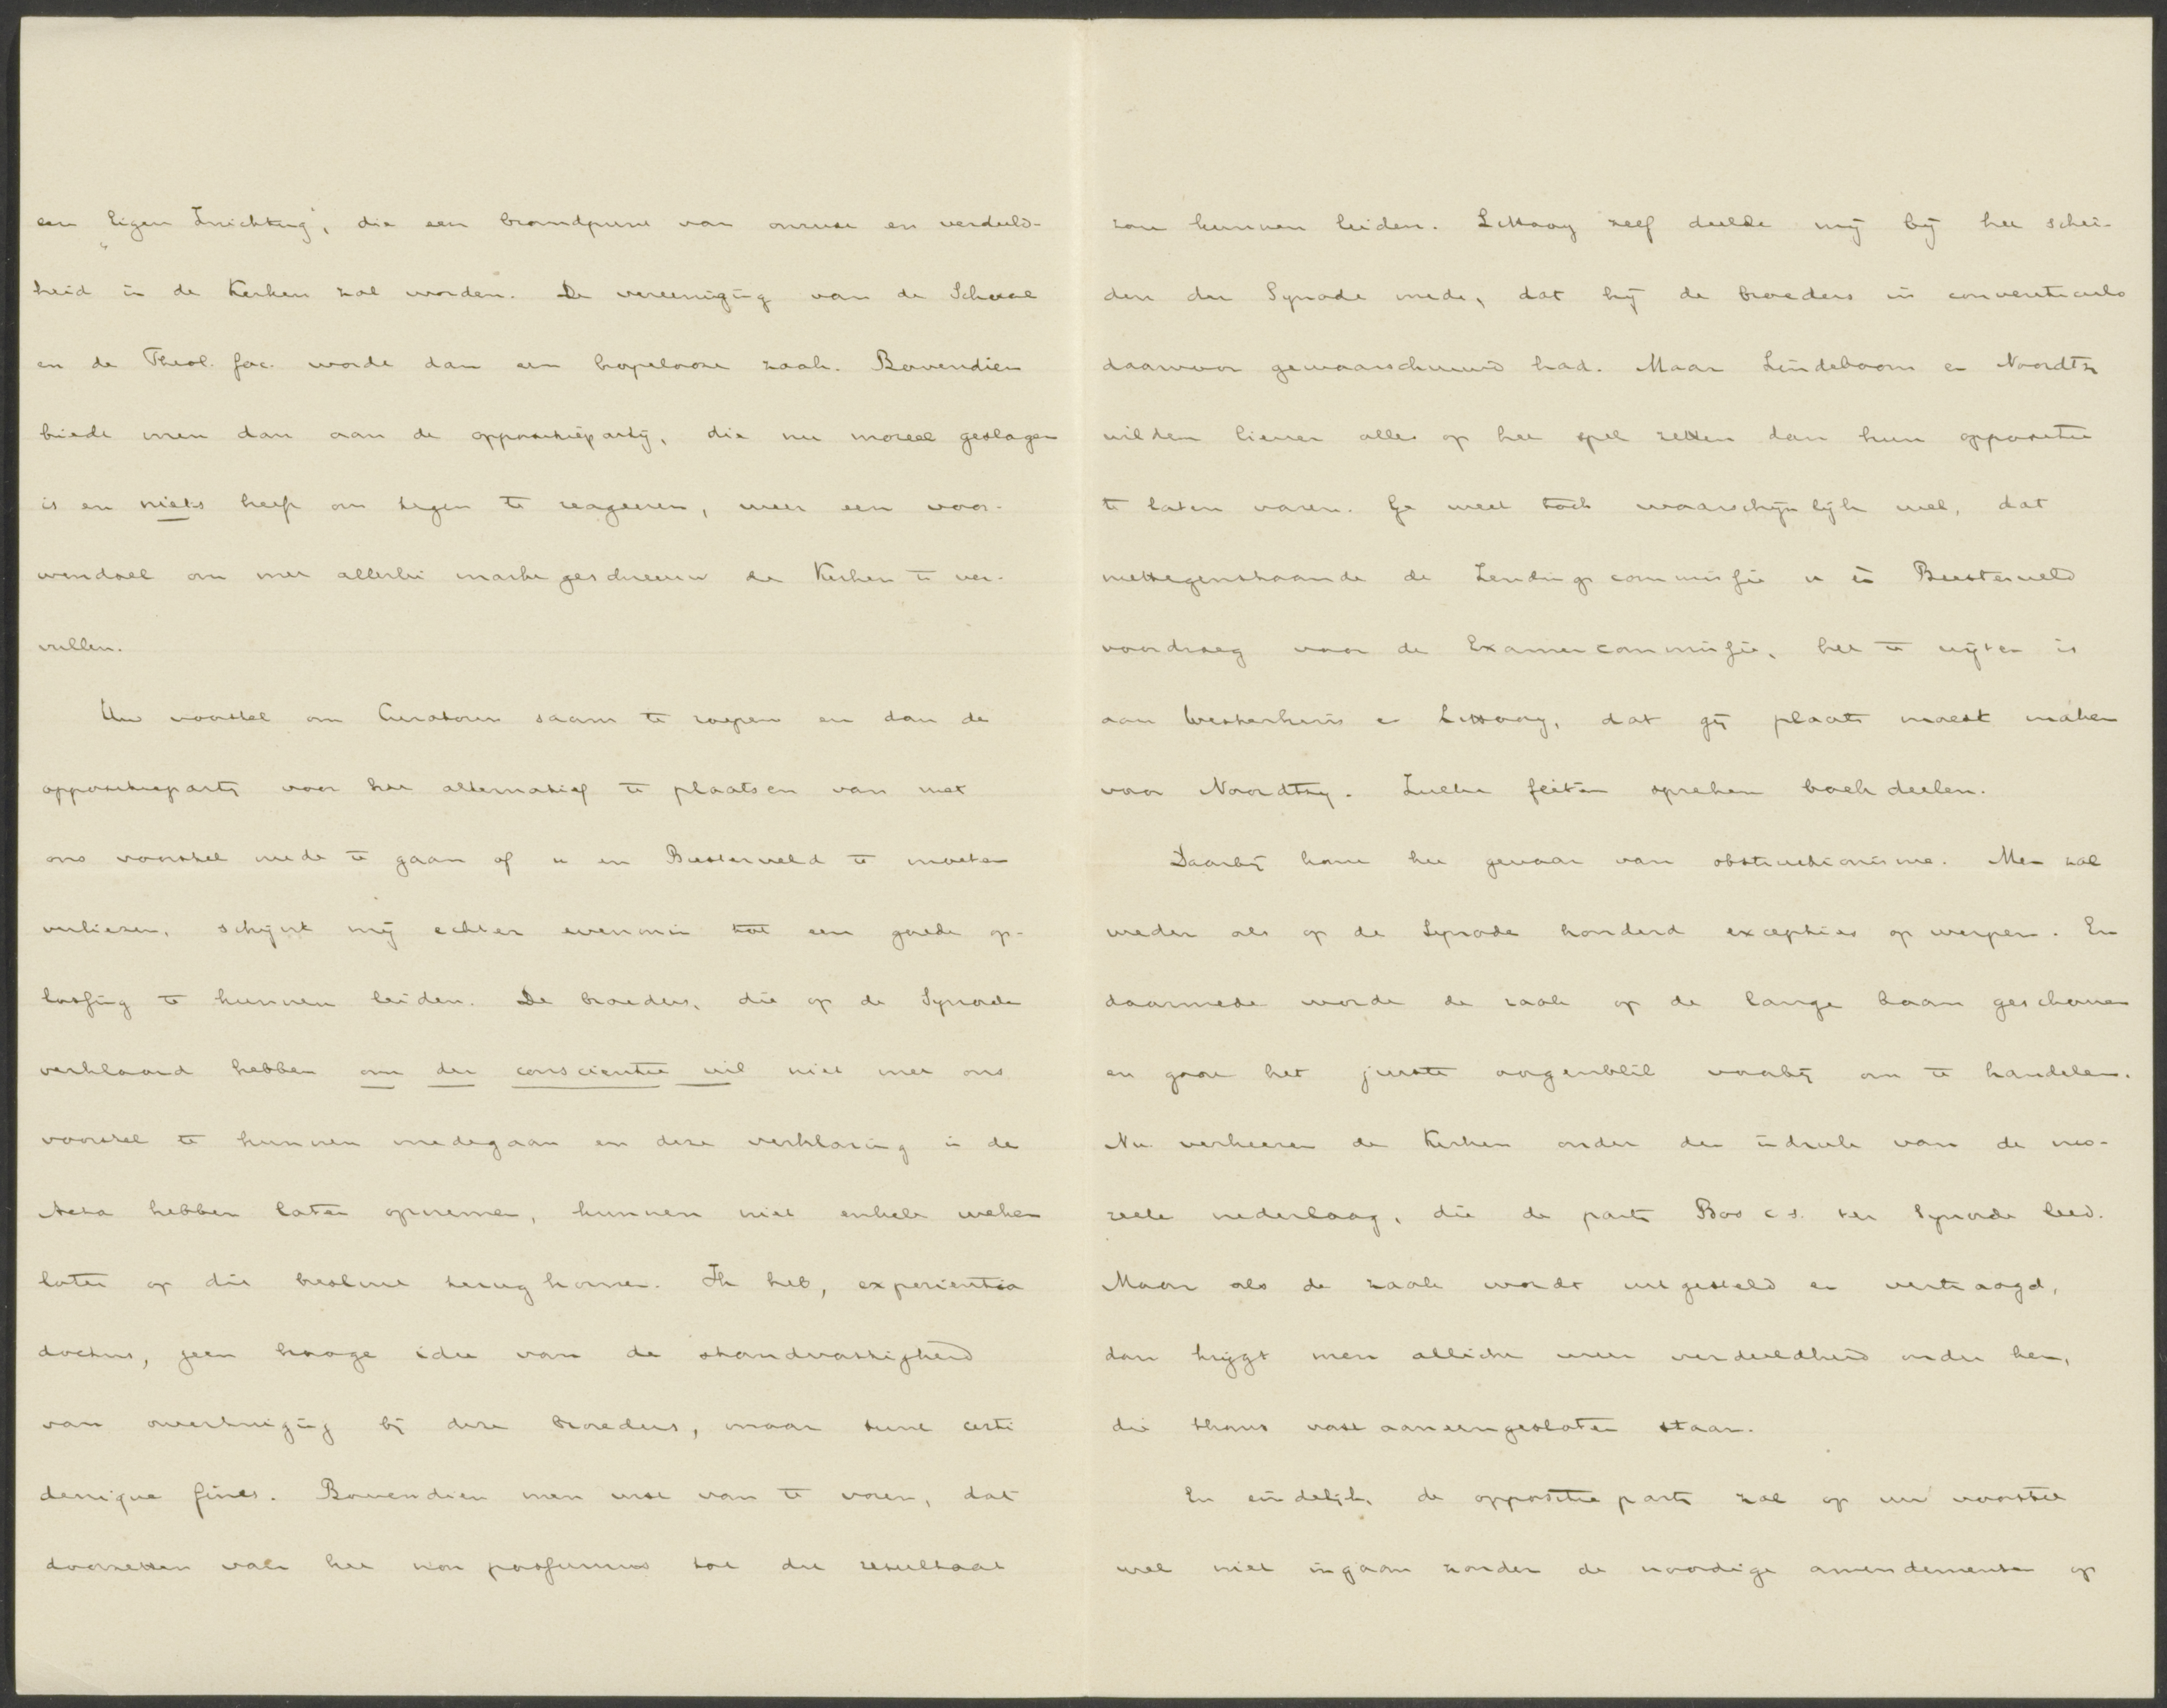 een „Eigen Inrichting", die een brandpunt van onrust en verdeeld-
heid in de Kerken zal worden. De vereeniging van de School
en de Theol. fac. wordt dan een hopelooze zaak. Bovendien
biedt men dan aan de oppositiepartij, die nu moreel geslagen
is en niets heeft om tegen te reageeren, weer een voor-
wendsel om met allerlei martelgeschreeuw de Kerken te ver-
vullen.
Uw voorstel om Curatoren saam te roepen en dan de
oppositiepartij voor het alternatief te plaatsen van met
ons voorstel mede te gaan of u en Biesterveld te moeten
verliezen, schijnt mij echter evenmin tot een goede op-
lossing te kunnen leiden. De broeders, die op de Synode
verklaard hebben om der conscientie wil niet met ons
voorstel te kunnen medegaan en deze verklaring in de
Acta hebben laten opnemen, kunnen niet enkele weken
later op die besluit terug komen. Ik heb, experientia
doctus, geen hooge idee van de standvastigheid
van overtuiging bij deze broeders, maar sunt certi
denique fines. Bovendien men wist van te voren, dat
doorzetten van het non possumus tot dit resultaat
zou kunnen leiden. Littooy zelf deelde mij bij het schei-
den der Synode mede, dat hij de broeders in conventiculo
daarvoor gewaarschuwd had. Maar Lindeboom en Noordtzij
wilden liever alles op het spel zetten dan hun oppositie
te laten varen. Ge weet toch waarschijnlijk wel, dat
niettegenstaande de Zendingscommissie u en Biesterveld
voordroeg voor de Examencommissie, het te wijten is
aan Westerhuis en Littooy, dat gij plaats moest maken
voor Noordtzij. Zulke feiten spreken boekdeelen.
Daarbij komt het gevaar van obstructionisme. Men zal
weder als op de Synode honderd excepties opwerpen. En
daarmede wordt de zaak op de lange baan geschoven
en gaat het juiste oogenblik voorbij om te handelen.
Nu verkeeren de Kerken onder den indruk van de mo-
reele nederlaag, die de partij Bos c.s. ter Synode leed.
Maar als de zaak wordt uitgesteld en vertraagd,
dan krijgt men allicht weer verdeeldheid onder hen,
die thans vast aaneengesloten staan.
En eindelijk, de oppositiepartij zal op uw voorstel
wel niet ingaan zonder de noodige amendementen op